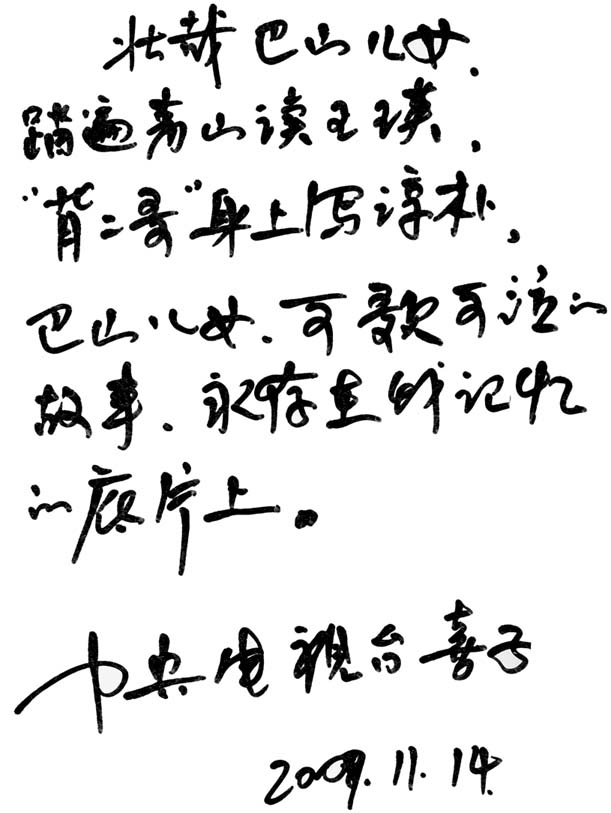 壮哉巴山儿女、
踏遍青山读王瑛,
“背二哥”身上写淳朴,
巴山儿女、可歌可泣的
故事、永存在我记忆
的底片上。
中央电视台喜子
2009.11.14